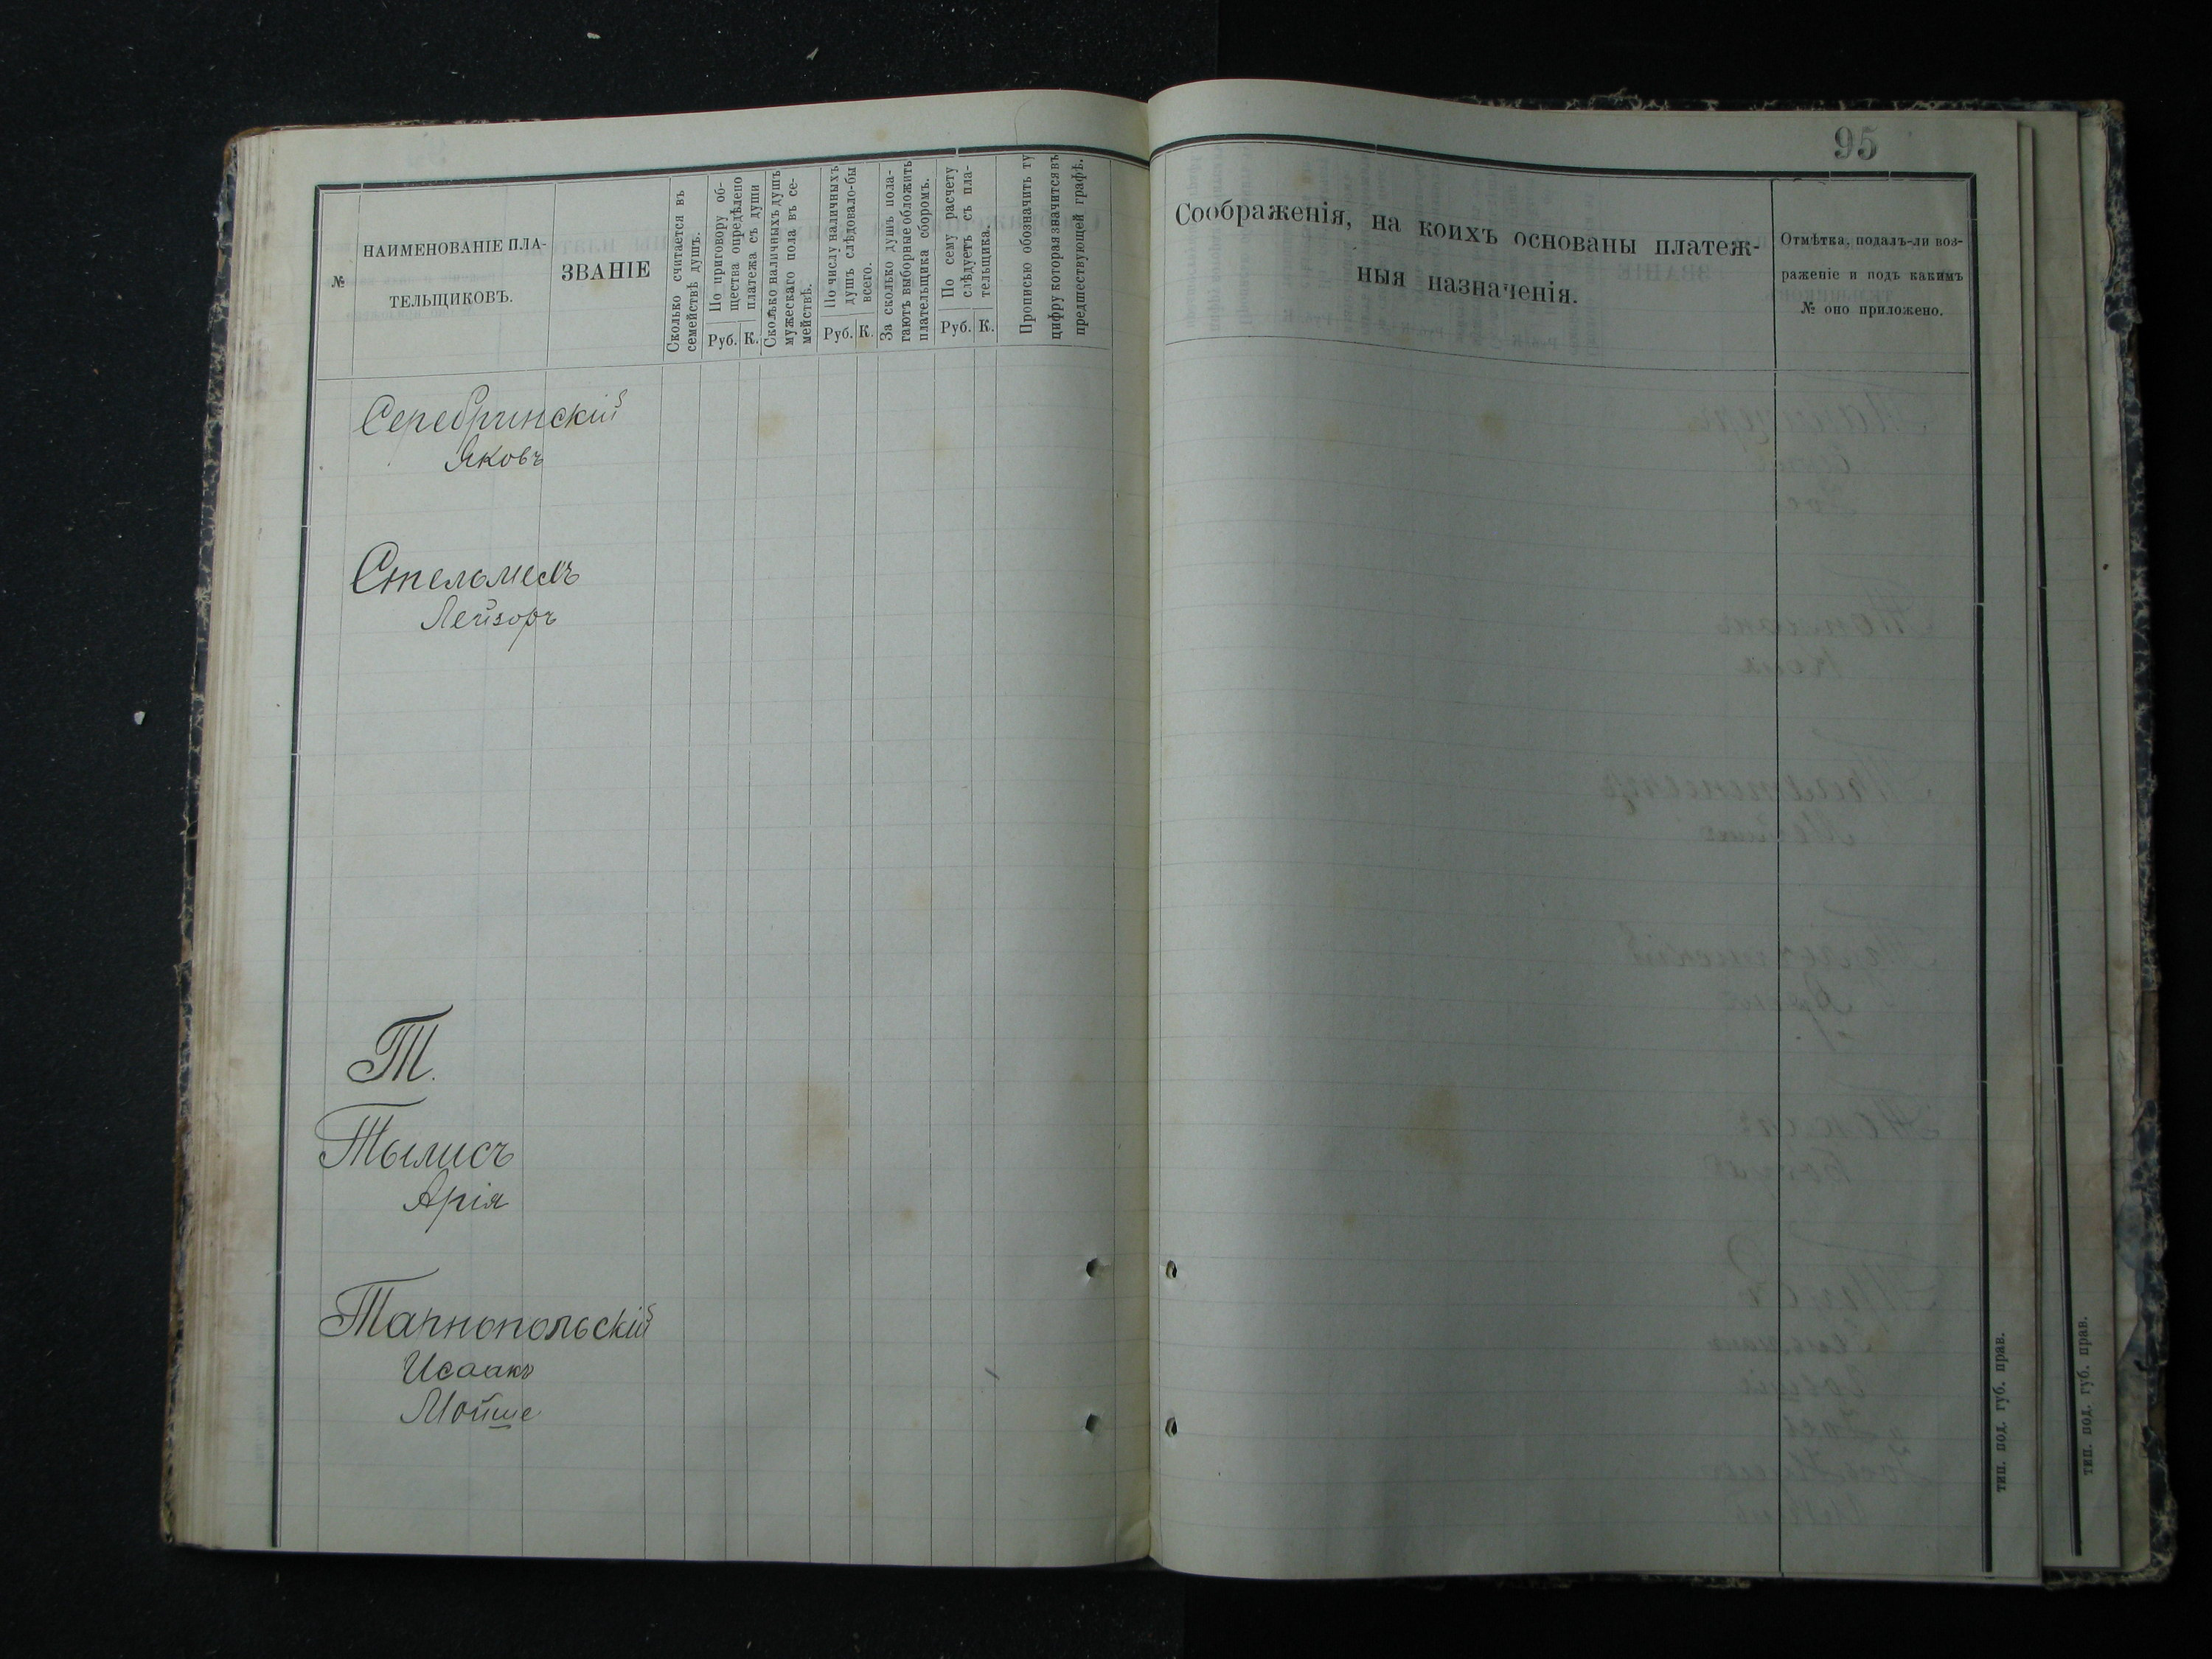 95
№
НАИМЕНОВАНІЕ ПЛА-
ТЕЛЬЩИКОВЪ.
ЗВАНІЕ
Сколько считается въ
семействѣ душъ.
По приговору об-
щества опредѣлено
платежа съ души
Руб. К.
Сколько наличныхъ душъ
мужескаго пола въ се-
мействѣ.
По числу наличныхъ
душъ слѣдовало-бы
всего.
Руб. К.
За сколько душъ пола-
гаютъ выборные обложить
плательщика сборомъ.
По сему расчету
слѣдуетъ съ пла-
тельщика.
Руб. К.
Прописью обозначить ту
цифру которая значится въ
предшествующей графѣ.
Соображенія, на коихъ основаны платеж-
ныя назначенія.
Отмѣтка, подалъ-ли воз-
раженіе и подъ какимъ
№ оно приложено.
Серебринскій
Яковъ
Стельмахъ
Лейзоръ
Т.
Тылисъ
Арія
Тарнопольскій
Исаакъ
Мойше
тип. под. губ. прав.
тип. под. губ. прав.